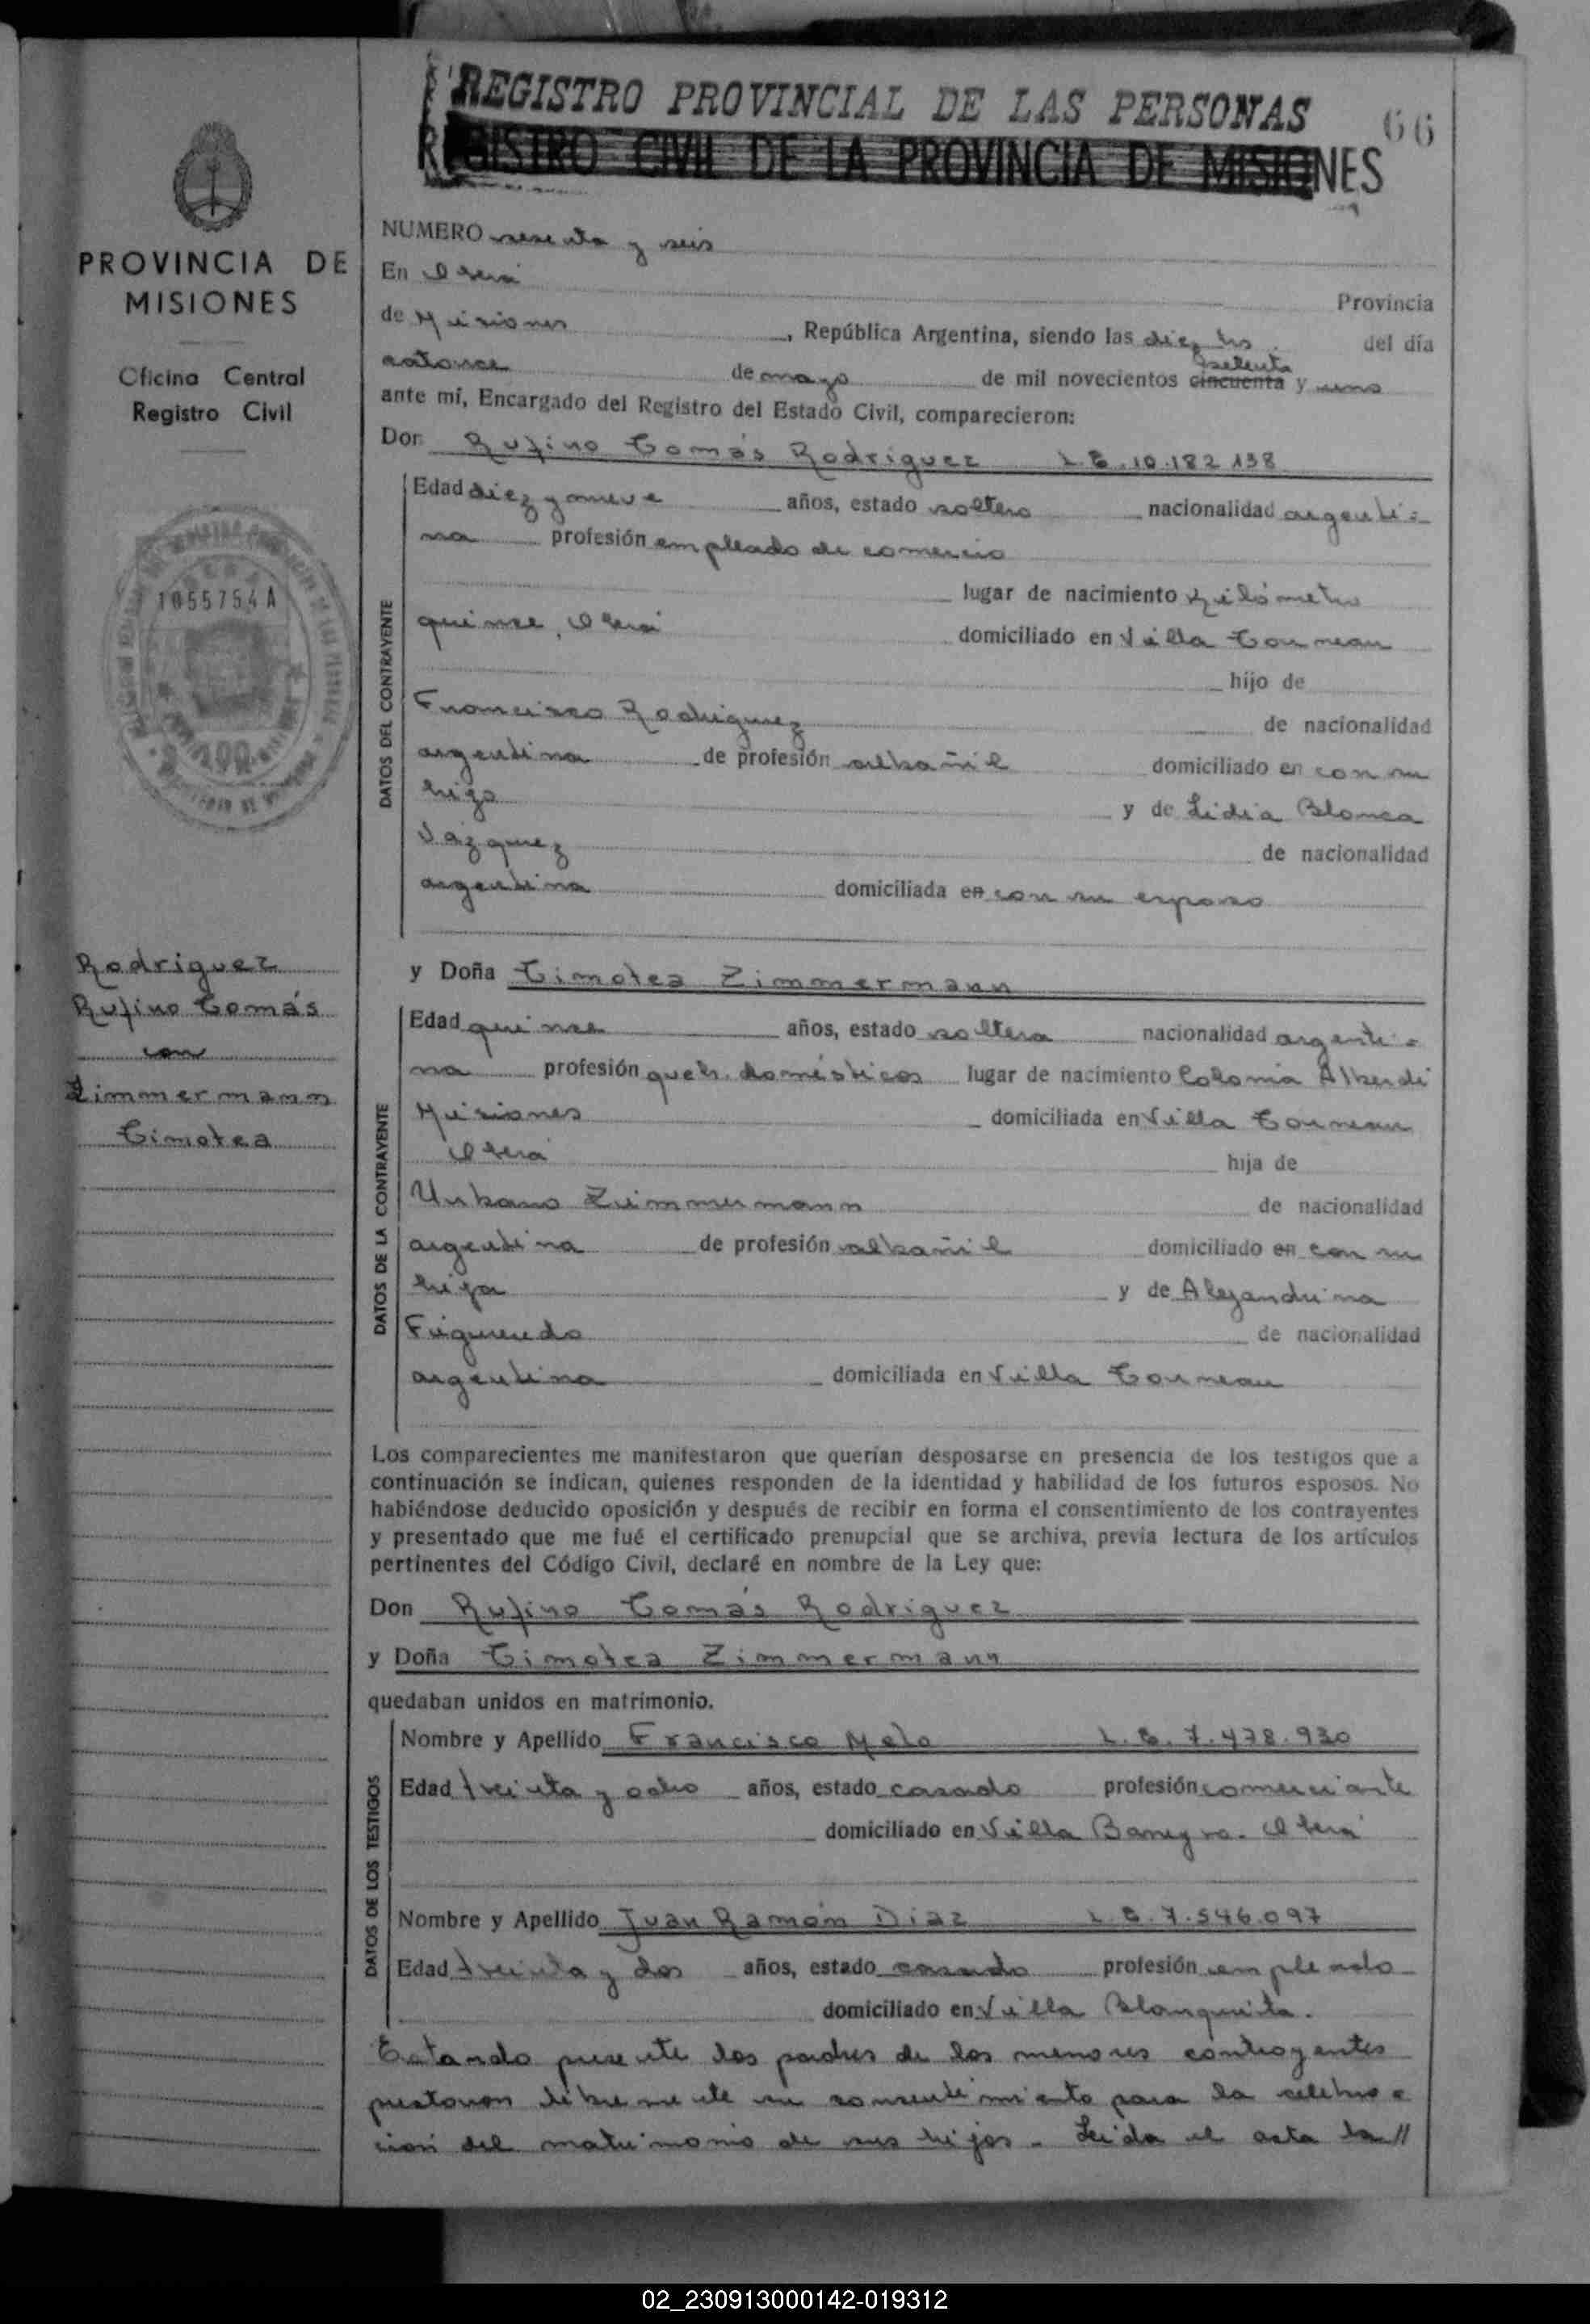 REGISTRO PROVINCIAL DE LAS PERSONAS
66
REGISTRO CIVIL DE LA PROVINCIA DE MISIONES
PROVINCIA DE
MISIONES
Oficina Central
Registro Civil
1055754 A
Rodriguez
Rufino Tomás
con
Zimmermann
Timotea
NUMERO sesenta y seis
En Oberá Provincia
de Misiones, República Argentina, siendo las diez hs. del día
catorce de mayo de mil novecientos cincuenta setenta y uno
ante mí, Encargado del Registro del Estado Civil, comparecieron:
Don Rufino Tomás Rodriguez L E. 10.182 138
DATOS DEL CONTRAYENTE
Edad diez y nueve años, estado soltero nacionalidad argenti=
na profesión empleado de comercio
lugar de nacimiento kilómetro
quince, Oberá domiciliado en Villa
hijo de
Francisco Rodriguez de nacionalidad
argentina de profesión albañil domiciliado en con su
hijo y de Lidia Blanca
Vázquez de nacionalidad
argentina domiciliada en con su esposo
y Doña Timotea Zimmermann
DATOS DE LA CONTRAYENTE
Edad quince años, estado soltera nacionalidad argenti=
na profesión queh. domésticos lugar de nacimiento Colonia Alberdi
Misiones domiciliada en Villa
Oberá hija de
Urbano Zimmermann de nacionalidad
argentina de profesión albañil domiciliado en con su
hija y de Alejandrina
de nacionalidad
argentina domiciliada en Villa
Los comparecientes me manifestaron que querían desposarse en presencia de los testigos que a
continuación se indican, quienes responden de la identidad y habilidad de los futuros esposos. No
habiéndose deducido oposición y después de recibir en forma el consentimiento de los contrayentes
y presentado que me fué el certificado prenupcial que se archiva, previa lectura de los artículos
pertinentes del Código Civil, declaré en nombre de la Ley que:
Don Rufino Tomás Rodriguez
y Doña Timotea Zimmermann
quedaban unidos en matrimonio.
DATOS DE LOS TESTIGOS
Nombre y Apellido Francisco Melo L. E. 7.478.930
Edad treinta y ocho años, estado casado profesión comerciante
domiciliado en Villa Oberá
Nombre y Apellido Juan Ramón Diaz L. E. 7.546.097
Edad treinta y dos años, estado casado profesión empleado
domiciliado en Villa Blanquita.
Estando presente los padres de los menores contrayentes
prestaron libremente su consentimiento para la celebra=
cion del matrimonio de sus hijos. Leida el acta la //
02_230913000142-019312